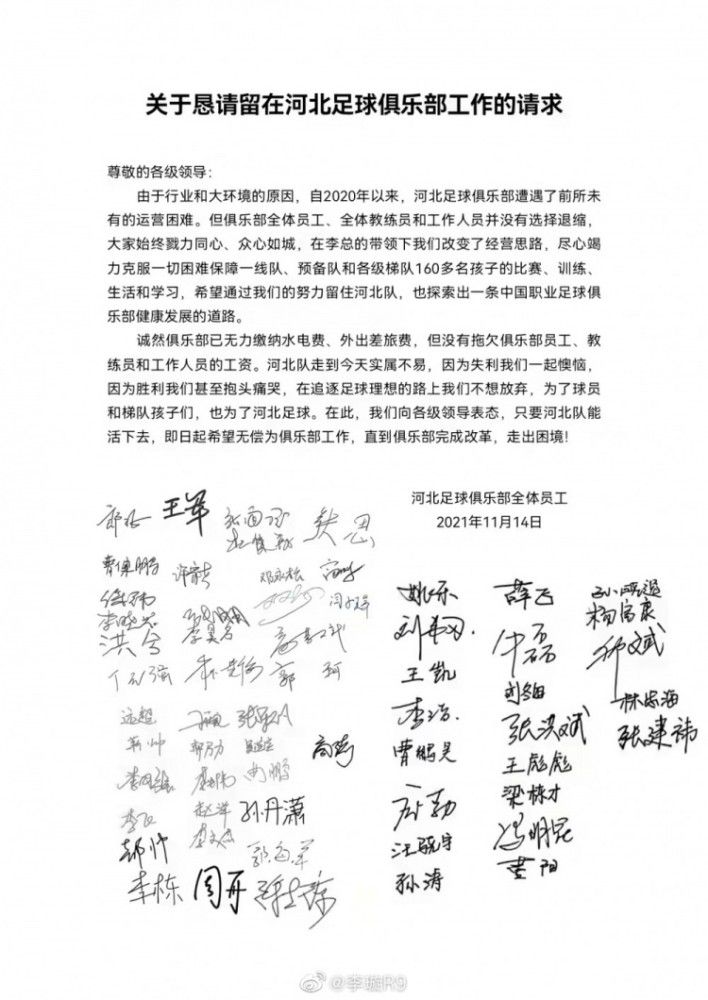 关于恳请留在河北足球俱乐部工作的请求
尊敬的各级领导：
由于行业和大环境的原因，自2020年以来，河北足球俱乐部遭遇了前所未
有的运营困难。但俱乐部全体员工、全体教练员和工作人员并没有选择退缩，
大家始终戮力同心、众心如城，在李总的带领下我们改变了经营思路，尽心竭
力克服一切困难保障一线队、预备队和各级梯队160多名孩子的比赛、训练、
生活和学习，希望通过我们的努力留住河北队，也探索出一条中国职业足球俱
乐部健康发展的道路。
诚然俱乐部已无力缴纳水电费、外出差旅费，但没有拖欠俱乐部员工、教
练员和工作人员的工资。河北队走到今天实属不易，因为失利我们一起懊恼，
因为胜利我们甚至抱头痛哭，在追逐足球理想的路上我们不想放弃，为了球员
和梯队孩子们，也为了河北足球。在此，我们向各级领导表态，只要河北队能
活下去，即日起希望无偿为俱乐部工作，直到俱乐部完成改革，走出困境！
河北足球俱乐部全体员工
2021年11月14日
王军
姚乐
薛飞
杨富康
洪兮
王凯
李浩
林宏海
张洪斌
张建祎
曹鹏昊
王彪彪
梁栋才
孙丹潇
汪晓宇
冯明昆
孙涛
李栋
周开
@李璇R9